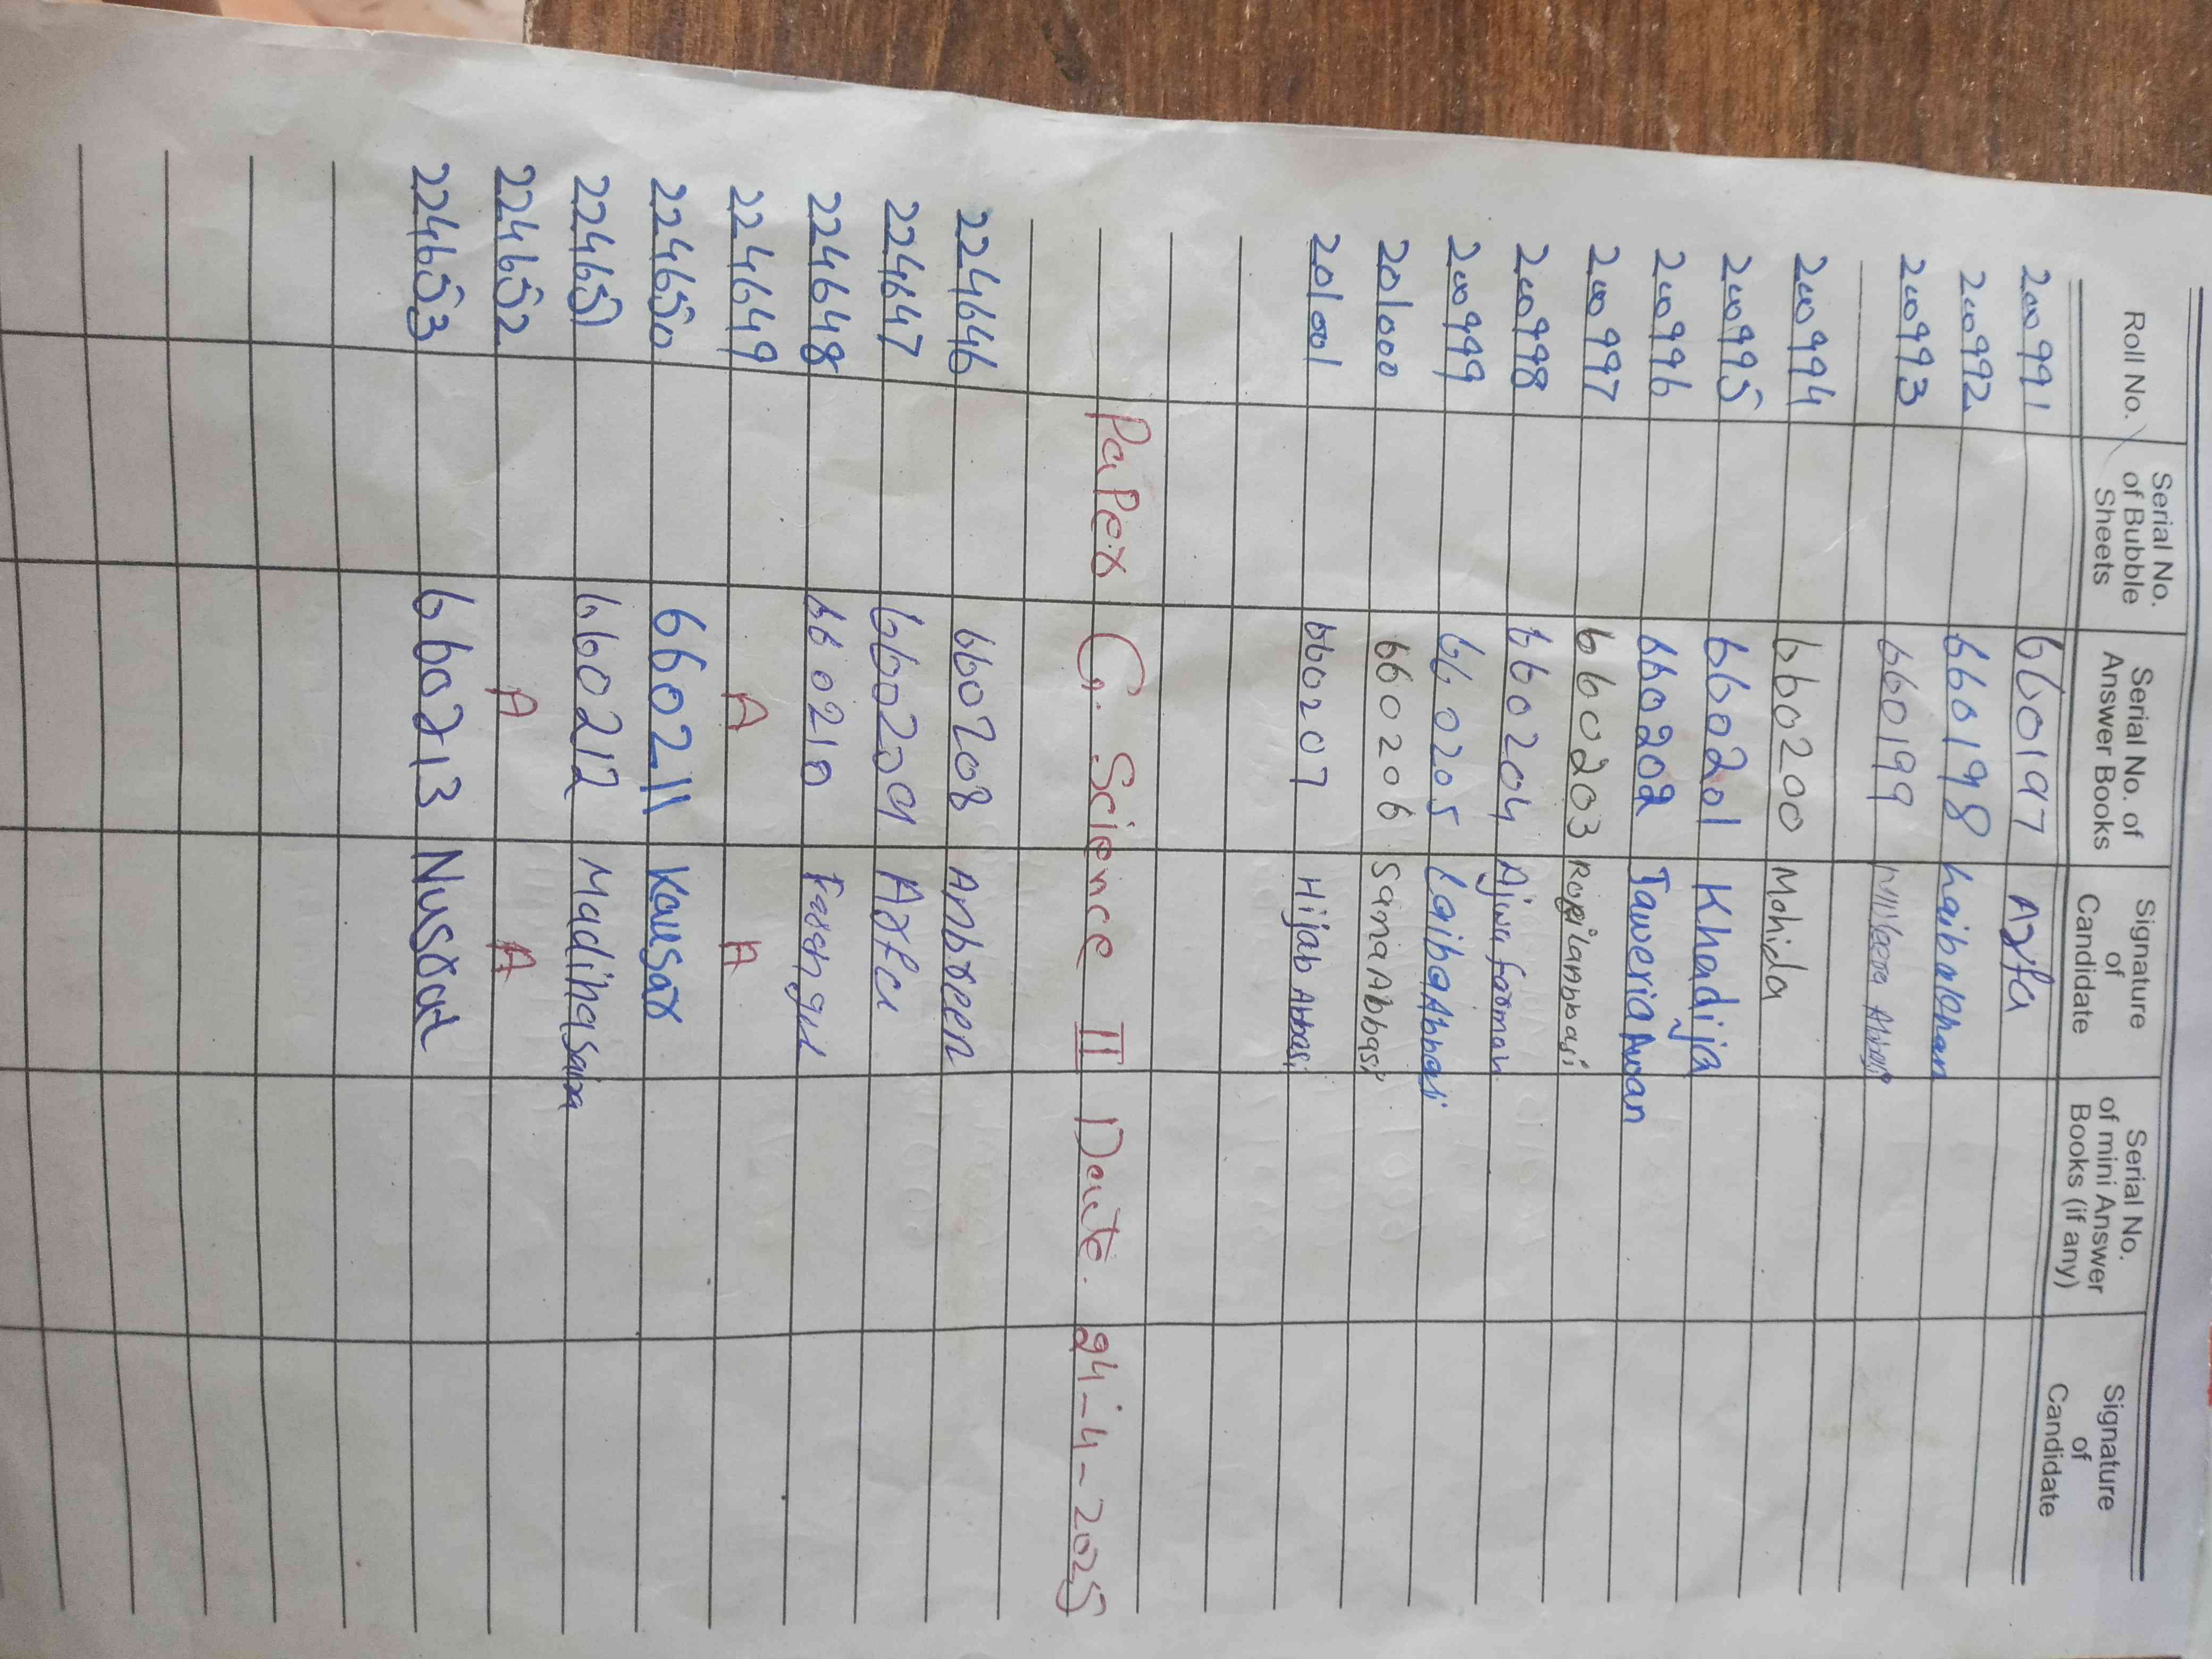 Roll No. Serial No. of Bubble Sheets Serial No. of Answer Books Signature of Candidate Serial No. of mini Answer Books (if any) Signature of Candidate
200991 660197 Arfa
200992 660198 Laiba khan
200993 660199 Abbasi
200994 660200 Mahida
200995 660201 Khadija
200996 660202 Taweria Awan
200997 660203
200998 660204 Ajwa farman
200999 660205 Laiba Abbasi
201000 660206 Sama Abbasi
201001 660207 Hijab Abbasi
Paper G. Science II Date. 24-4-2025
224646 660208 Anbreen
224647 660209
224648 660210 gul
224649 A A
224650 660211 Kousar
224651 660212 Madiha Saira
224652 A A
224653 660213 Nusrat